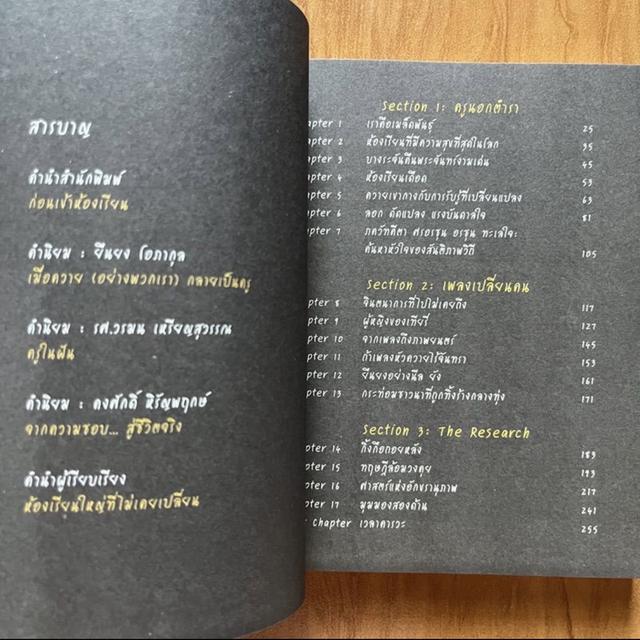 สารบาญ
คำนำสำนักพิมพ์
ก่อนเข้าห้องเรียน
คำนิยม : ยืนยง โอภากุล
เมื่อควาย (อย่างพวกเรา) กลายเป็นครู
คำนิยม : รศ.วรมน เหรียญสุวรรณ
ครูในฝัน
คำนิยม : คงศักดิ์ หิรัญพฤกษ์
จากความชอบ... สู่ชีวิตจริง
คำนำผู้เรียบเรียง
ห้องเรียนใหญ่ที่ไม่เคยเปลี่ยน
Section 1: ครูนอกตำรา
apter 1 เราคือเมล็ดพันธุ์ 25
apter 2 ห้องเรียนที่มีความสุขที่สุดในโลก 35
apter 3 บางระจันทีนพระจันทร์งามเด่น 45
apter 4 ห้องเรียนเดือด 53
apter 5 ควายเขากางกับการรับรู้ที่เปลี่ยนแปลง 63
apter 6 ลอก ดัดแปลง แรงบันดาลใจ 81
apter 7 ภควัทคีตา ศรอรชุน อรชุน ทะเลใจ:
ค้นหาหัวใจของสันติภาพวิถี 105
Section 2: เพลงเปลี่ยนคน
apter 8 จินตนาการที่ไปไม่เคยถึง 117
apter 9 ผู้หญิงของเทียรี่ 127
apter 10 จากเพลงถึงภาพยนตร์ 145
apter 11 ก้าเพลงหัวควายไร้จันทรา 153
apter 12 ยืนยงอย่างนีล ยัง 161
apter 13 กระท่อมชาวนาที่ถูกทิ้งร้างกลางทุ่ง 171
Section 3: The Research
apter 14 กิ้งกือถอยหลัง 183
apter 15 ทฤษฎีล้อมวงคุย 193
apter 16 ศาสตร์แห่งอัครานุภาพ 217
apter 17 มุมมองสองด้าน 241
Chapter เวลาคารวะ 255